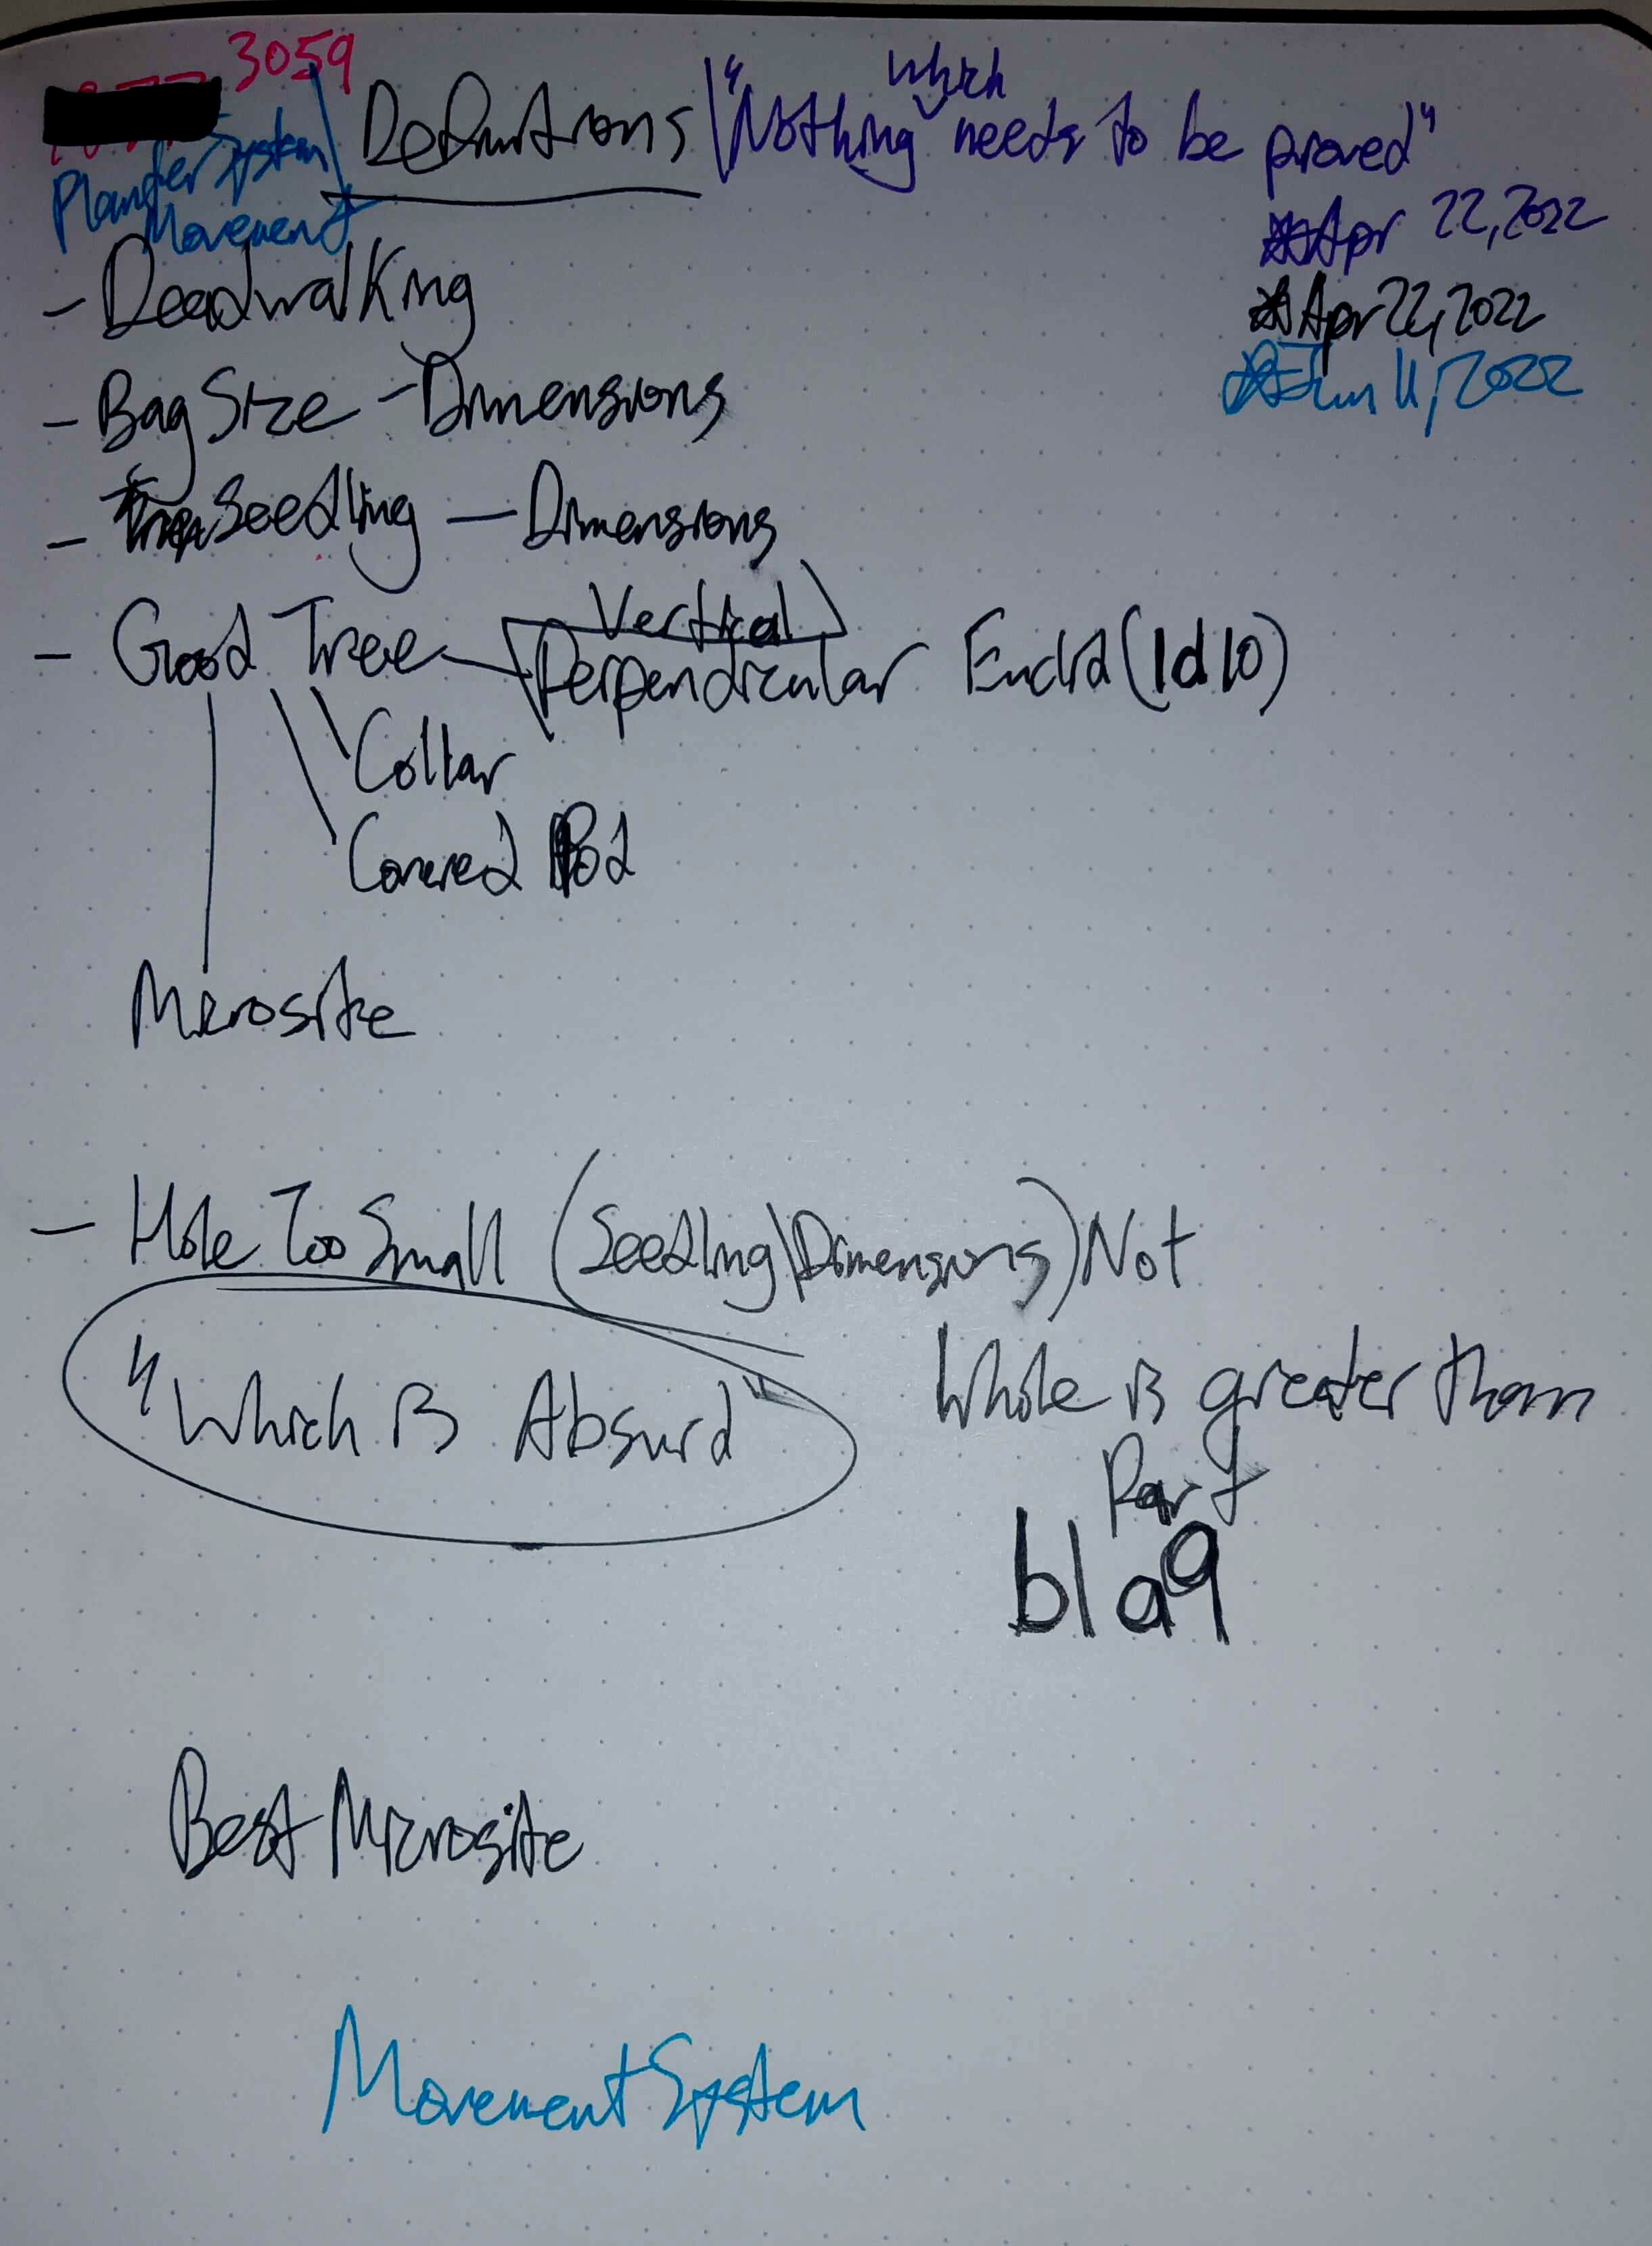 3059
Planter System
Movement
Definitions "Nothing which needs to be proved"
Apr 22, 2022
Apr 22, 2022
Jun 11, 2022
- Deadwalking
- Bag Size - Dimensions
- Seedling — Dimensions
- Good Tree Vertical
Perpendicular Euclid (1d10)
Collar
Covered Pod
Microsite
- Hole Too Small (Seedling\Dimensions) Not
"Which is Absurd" Whole is greater than
Part
b1a9
Best Microsite
Movement System